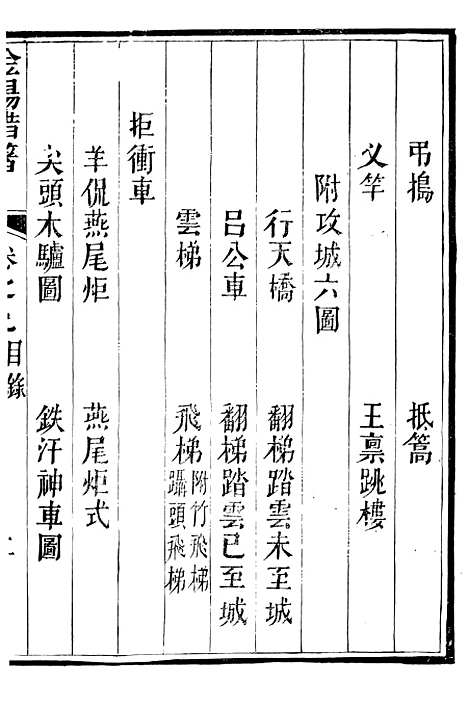 弔搗 抵篙
义竿 王稟跳樓
附攻城六圖
行天橋 翻梯踏雲未至城
呂公車 翻梯踏雲已至城
雲梯 飛梯附竹飛梯躡頭飛梯
拒衝車
羊侃燕尾炬 燕尾炬式
尖頭木驢圖 鉄汗神車圖
金湯借箸 目錄